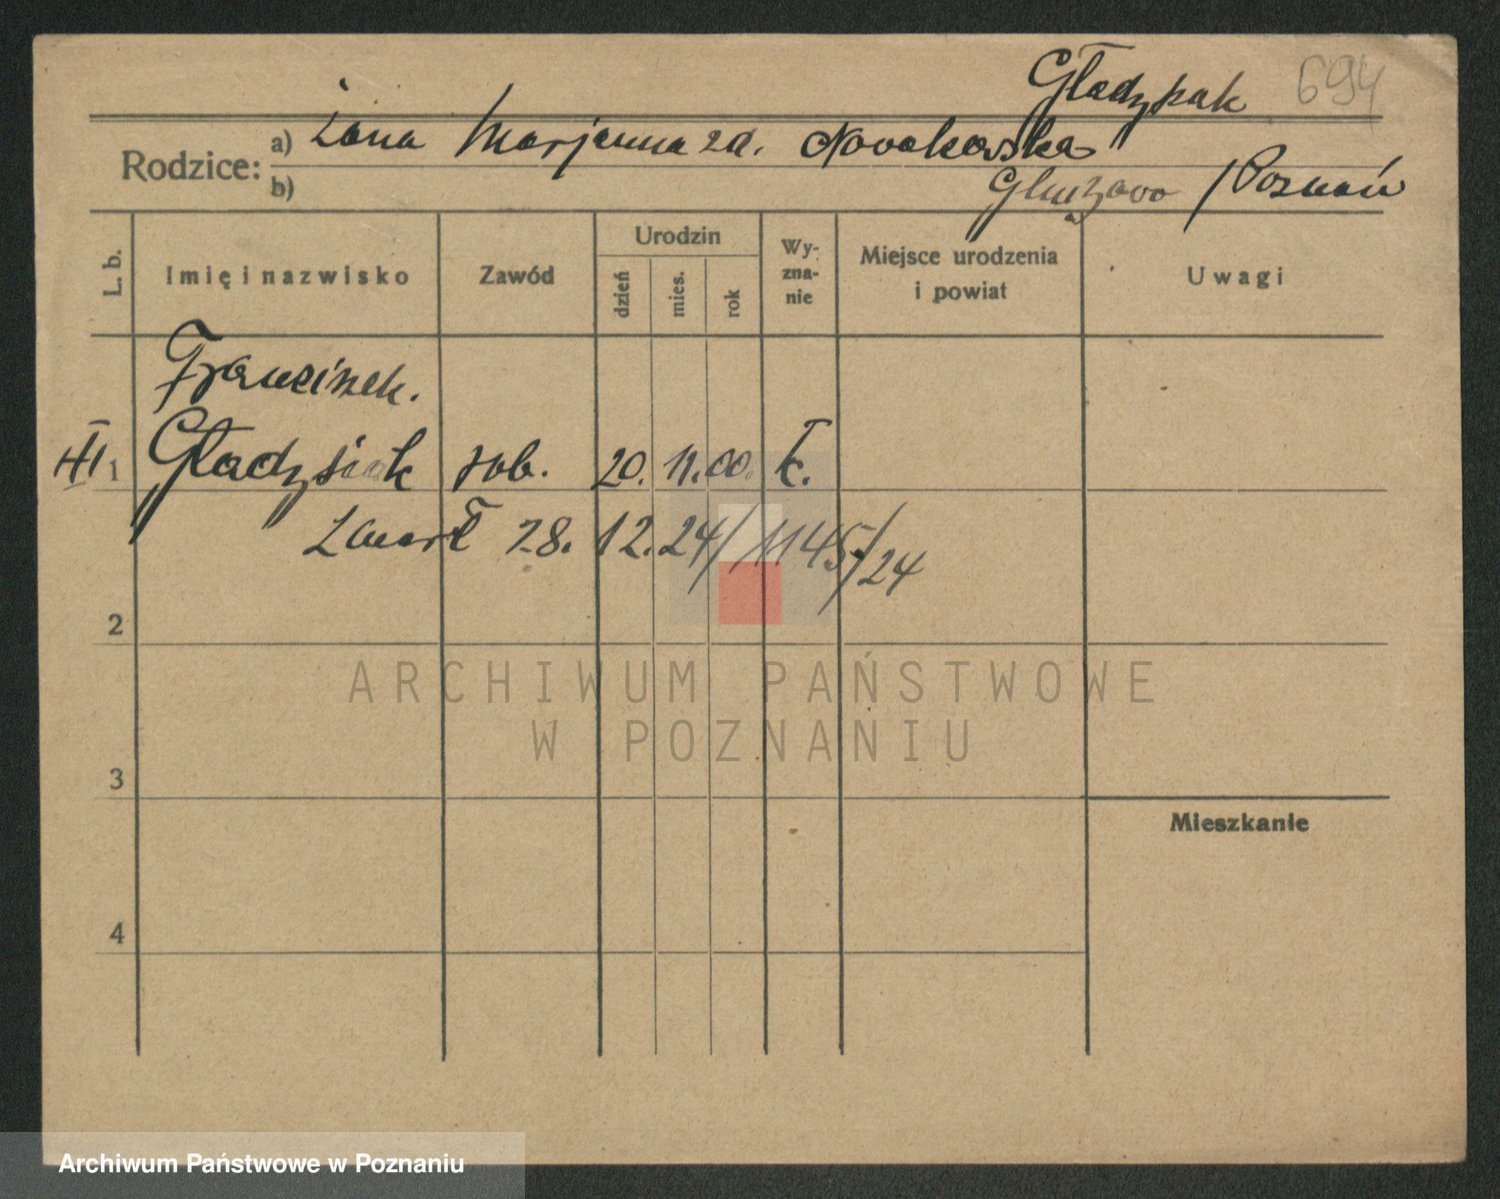 Gładyszak 694
Rodzice: a) żona Marjanna zd. Nowakowska
b) Głuszowo / Poznań
L. b. Imię i nazwisko Zawód Urodzin dzień mies. rok Wy-zna-nie Miejsce urodzenia i powiat Uwagi
Franciszek.
III 1 Gładysiak rob. 20. 11. 00. k.
zmarł 28. 12. 24/1145/24
2
ARCHIWUM PAŃSTWOWE
W POZNANIU
3
Mieszkanie
4
Archiwum Państwowe w Poznaniu